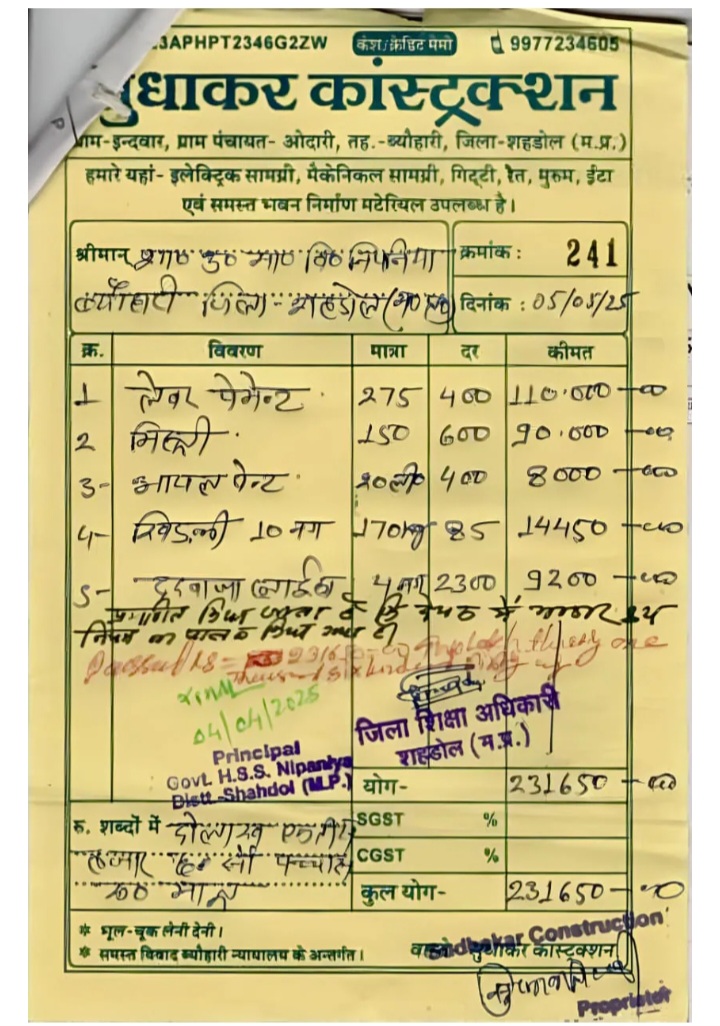 3APHPT2346G2ZW कैश/क्रेडिट मेमो 9977234605
सुधाकर कांस्ट्रक्शन
ग्राम-इन्दवार, ग्राम पंचायत- ओदारी, तह.-ब्यौहारी, जिला-शहडोल (म.प्र.)
हमारे यहां- इलेक्ट्रिक सामग्री, मैकेनिकल सामग्री, गिट्टी, रेत, मुरुम, ईटा
एवं समस्त भवन निर्माण मटेरियल उपलब्ध है।
श्रीमान् शा० उ० मा० वि० निपनिया क्रमांक : 241
ब्यौहारी जिला- शहडोल (म०प्र०) दिनांक : 05/05/25
क्र. विवरण मात्रा दर कीमत
1 लेवर पेमेन्ट 275 400 110.000-00
2 मिस्त्री 150 600 90.000-00
3- आयल पेन्ट 20ली० 400 8000-00
4- खिड़की 10 नग 170kg 85 14450-00
5- दरवाजा 4 नग 2300 9200-00
प्रमाणित किया जाता है कि में भण्डार क्रय
नियम का पालन किया गया है।
Passed RS = 231650
04/04/2025
Principal
Govt. H.S.S. Nipaniya
Distt-Shahdol (M.P.)
जिला शिक्षा अधिकारी
शहडोल (म.प्र.)
योग- 231650-00
रु. शब्दों में दो लाख एकतीस SGST %
हजार छः सौ पच्चास CGST %
रू० मात्र कुल योग- 231650-00
* भूल-चूक लेनी देनी।
* समस्त विवाद ब्यौहारी न्यायालय के अन्तर्गत। वास्ते सुधाकर कांस्ट्रक्शन
Sudhakar Construction
Proprietor